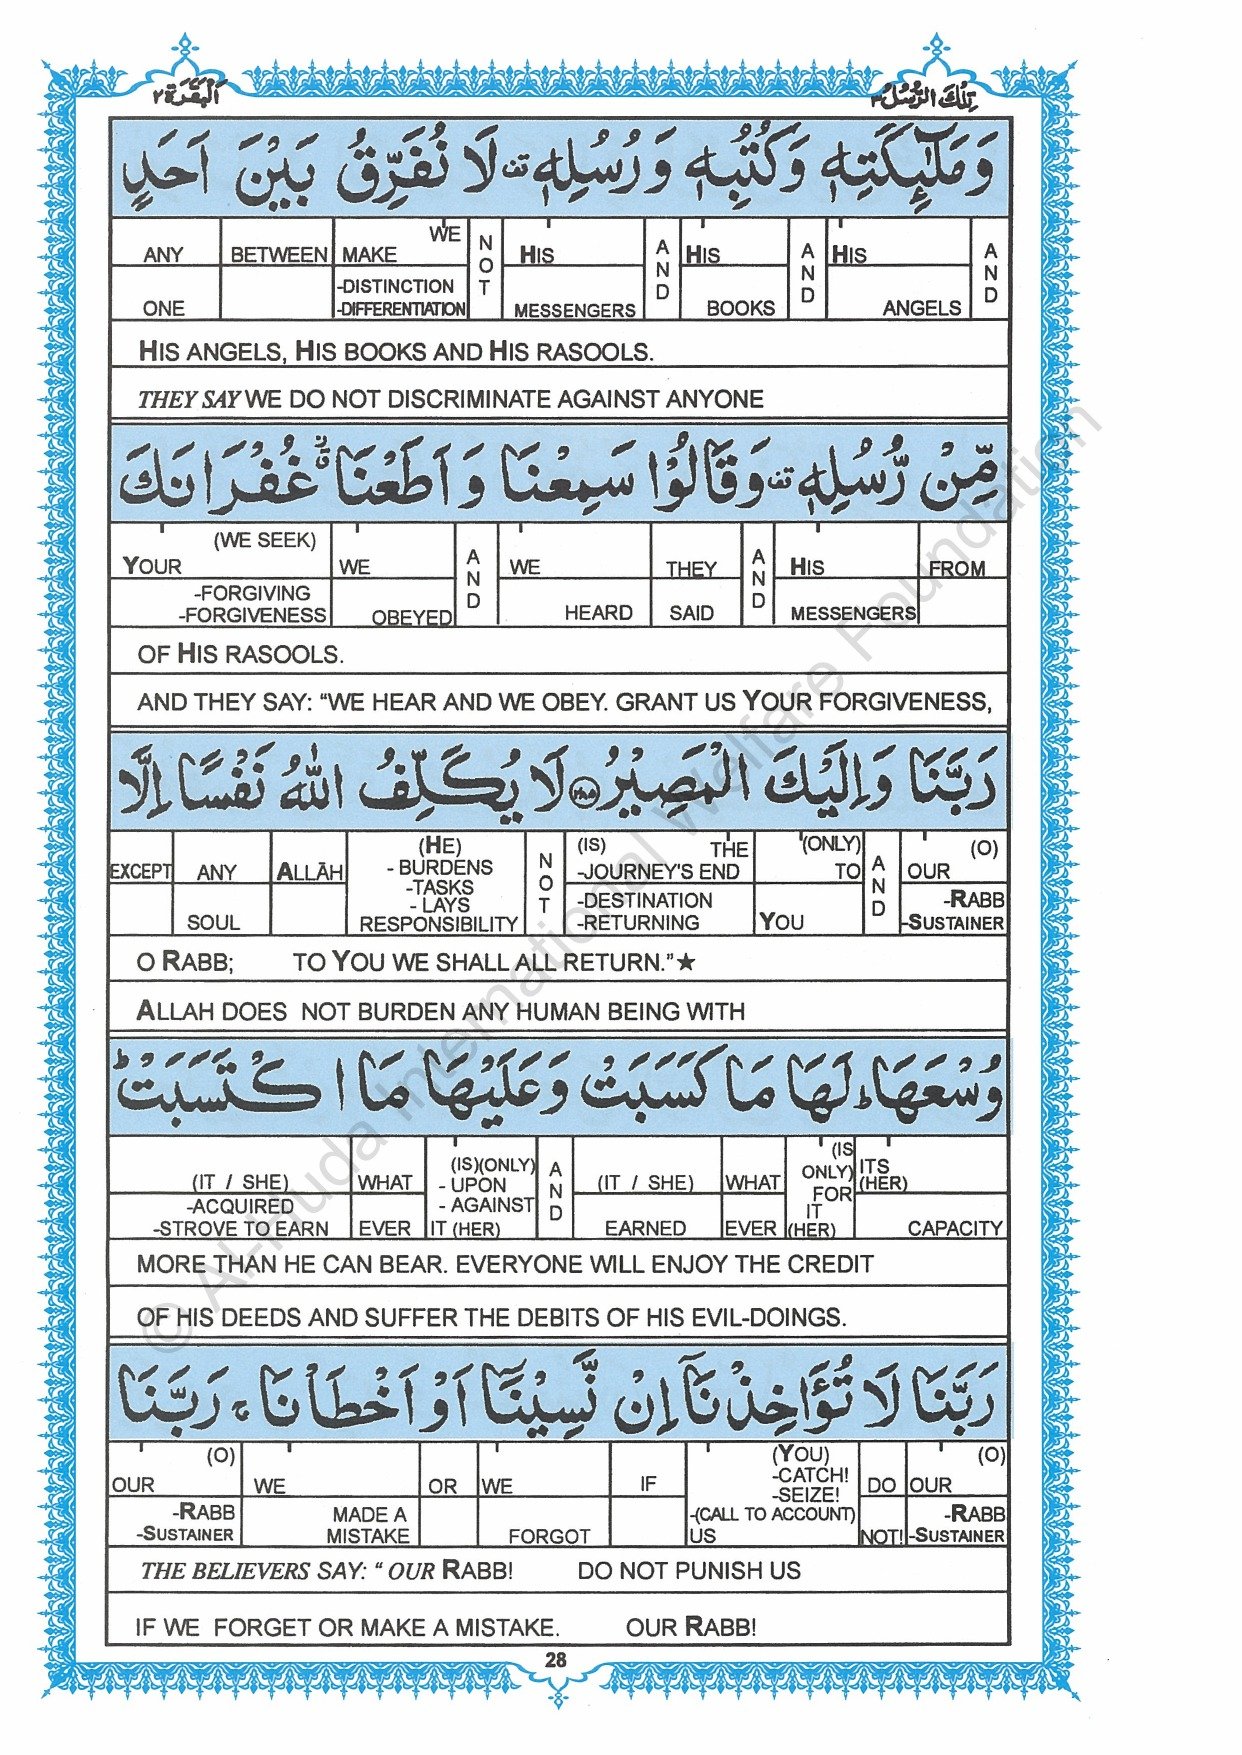 اَلْبَقَرَة ٢ تِلْكَ الرُّسُلُ ٣
وَ مَلٰٓئِكَتِهٖ وَ كُتُبِهٖ وَ رُسُلِهٖ قف لَا نُفَرِّقُ بَيْنَ اَحَدٍ
ANY BETWEEN MAKE WE NOT HIS AND HIS AND HIS AND
ONE -DISTINCTION -DIFFERENTIATION MESSENGERS BOOKS ANGELS
HIS ANGELS, HIS BOOKS AND HIS RASOOLS.
THEY SAY WE DO NOT DISCRIMINATE AGAINST ANYONE
مِّنْ رُّسُلِهٖ قف وَ قَالُوْا سَمِعْنَا وَ اَطَعْنَا ق غُفْرَانَكَ
YOUR (WE SEEK) WE AND WE THEY AND HIS FROM
-FORGIVING -FORGIVENESS OBEYED HEARD SAID MESSENGERS
OF HIS RASOOLS.
AND THEY SAY: “WE HEAR AND WE OBEY. GRANT US YOUR FORGIVENESS,
رَبَّنَا وَ اِلَيْكَ الْمَصِيْرُ ٢٨٥ لَا يُكَلِّفُ اللّٰهُ نَفْسًا اِلَّا
EXCEPT ANY ALLĀH (HE) - BURDENS NOT (IS) THE -JOURNEY'S END (ONLY) TO AND OUR (O)
SOUL -TASKS - LAYS RESPONSIBILITY -DESTINATION -RETURNING YOU -RABB -SUSTAINER
O RABB; TO YOU WE SHALL ALL RETURN.”★
ALLAH DOES NOT BURDEN ANY HUMAN BEING WITH
وُسْعَهَا ط لَهَا مَا كَسَبَتْ وَ عَلَيْهَا مَا اكْتَسَبَتْ ط
(IT / SHE) WHAT (IS)(ONLY) - UPON - AGAINST AND (IT / SHE) WHAT (IS ONLY) FOR ITS (HER)
-ACQUIRED -STROVE TO EARN EVER IT (HER) EARNED EVER IT (HER) CAPACITY
MORE THAN HE CAN BEAR. EVERYONE WILL ENJOY THE CREDIT
OF HIS DEEDS AND SUFFER THE DEBITS OF HIS EVIL-DOINGS.
رَبَّنَا لَا تُؤَاخِذْنَآ اِنْ نَّسِيْنَآ اَوْ اَخْطَاْنَا ج رَبَّنَا
OUR (O) WE OR WE IF (YOU) -CATCH! -SEIZE! DO OUR (O)
-RABB -SUSTAINER MADE A MISTAKE FORGOT -(CALL TO ACCOUNT) US NOT! -RABB -SUSTAINER
THE BELIEVERS SAY: “ OUR RABB! DO NOT PUNISH US
IF WE FORGET OR MAKE A MISTAKE. OUR RABB!
28
© Al-Huda International Welfare Foundation